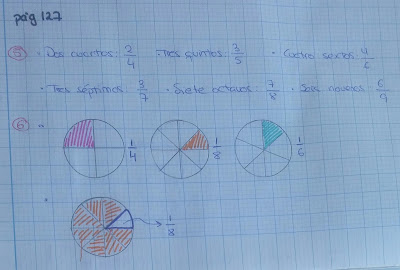 pág 127
5 · Dos cuartos: 2/4 · Tres quintos: 3/5 · Cuatro sextos: 4/6
· Tres séptimos: 3/7 · Siete octavos: 7/8 · Seis novenos: 6/9
6 · 1/4 1/8 1/6
· → 1/8